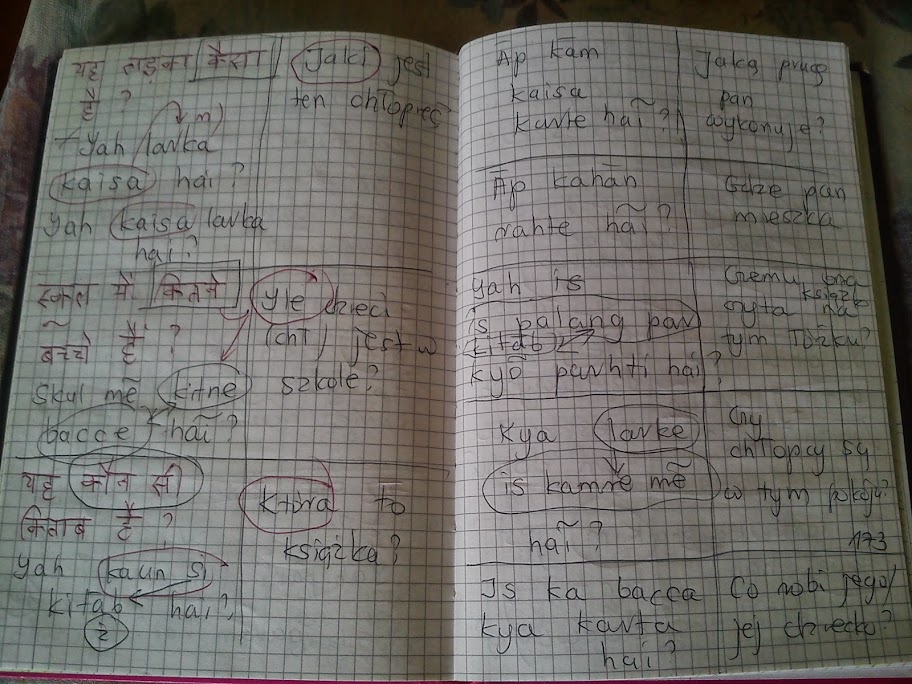 यह लड़का कैसा
है ?
m)
- Yah larka
kaisa hai ?
Yah kaisa larka
hai ?
Jaki jest
ten chłopiec
स्कूल में कितने
बच्चे हैं ?
Skul mẽ kitne
bacce haĩ ?
Yle dzieci
(chł) jest w
szkole?
यह कौन सी
किताब है ?
Yah kaun si
kitab hai ?
ż
Która to
książka?
Āp kām
kaisa
karte haĩ ?
Jaką pracę
pan
wykonuje?
Āp kahān
rahte haĩ ?
Gdzie pan
mieszka
Yah is
is palang par
kitāb
kyõ parhti hai ?
Czemu ona
książkę
czyta na
tym łóżku?
Kya larke
is kamre mẽ
haĩ ?
Czy
chłopcy są
w tym pokoju?
173
Is ka bacca
kya karta
hai ?
Co robi jego/
jej dziecko?